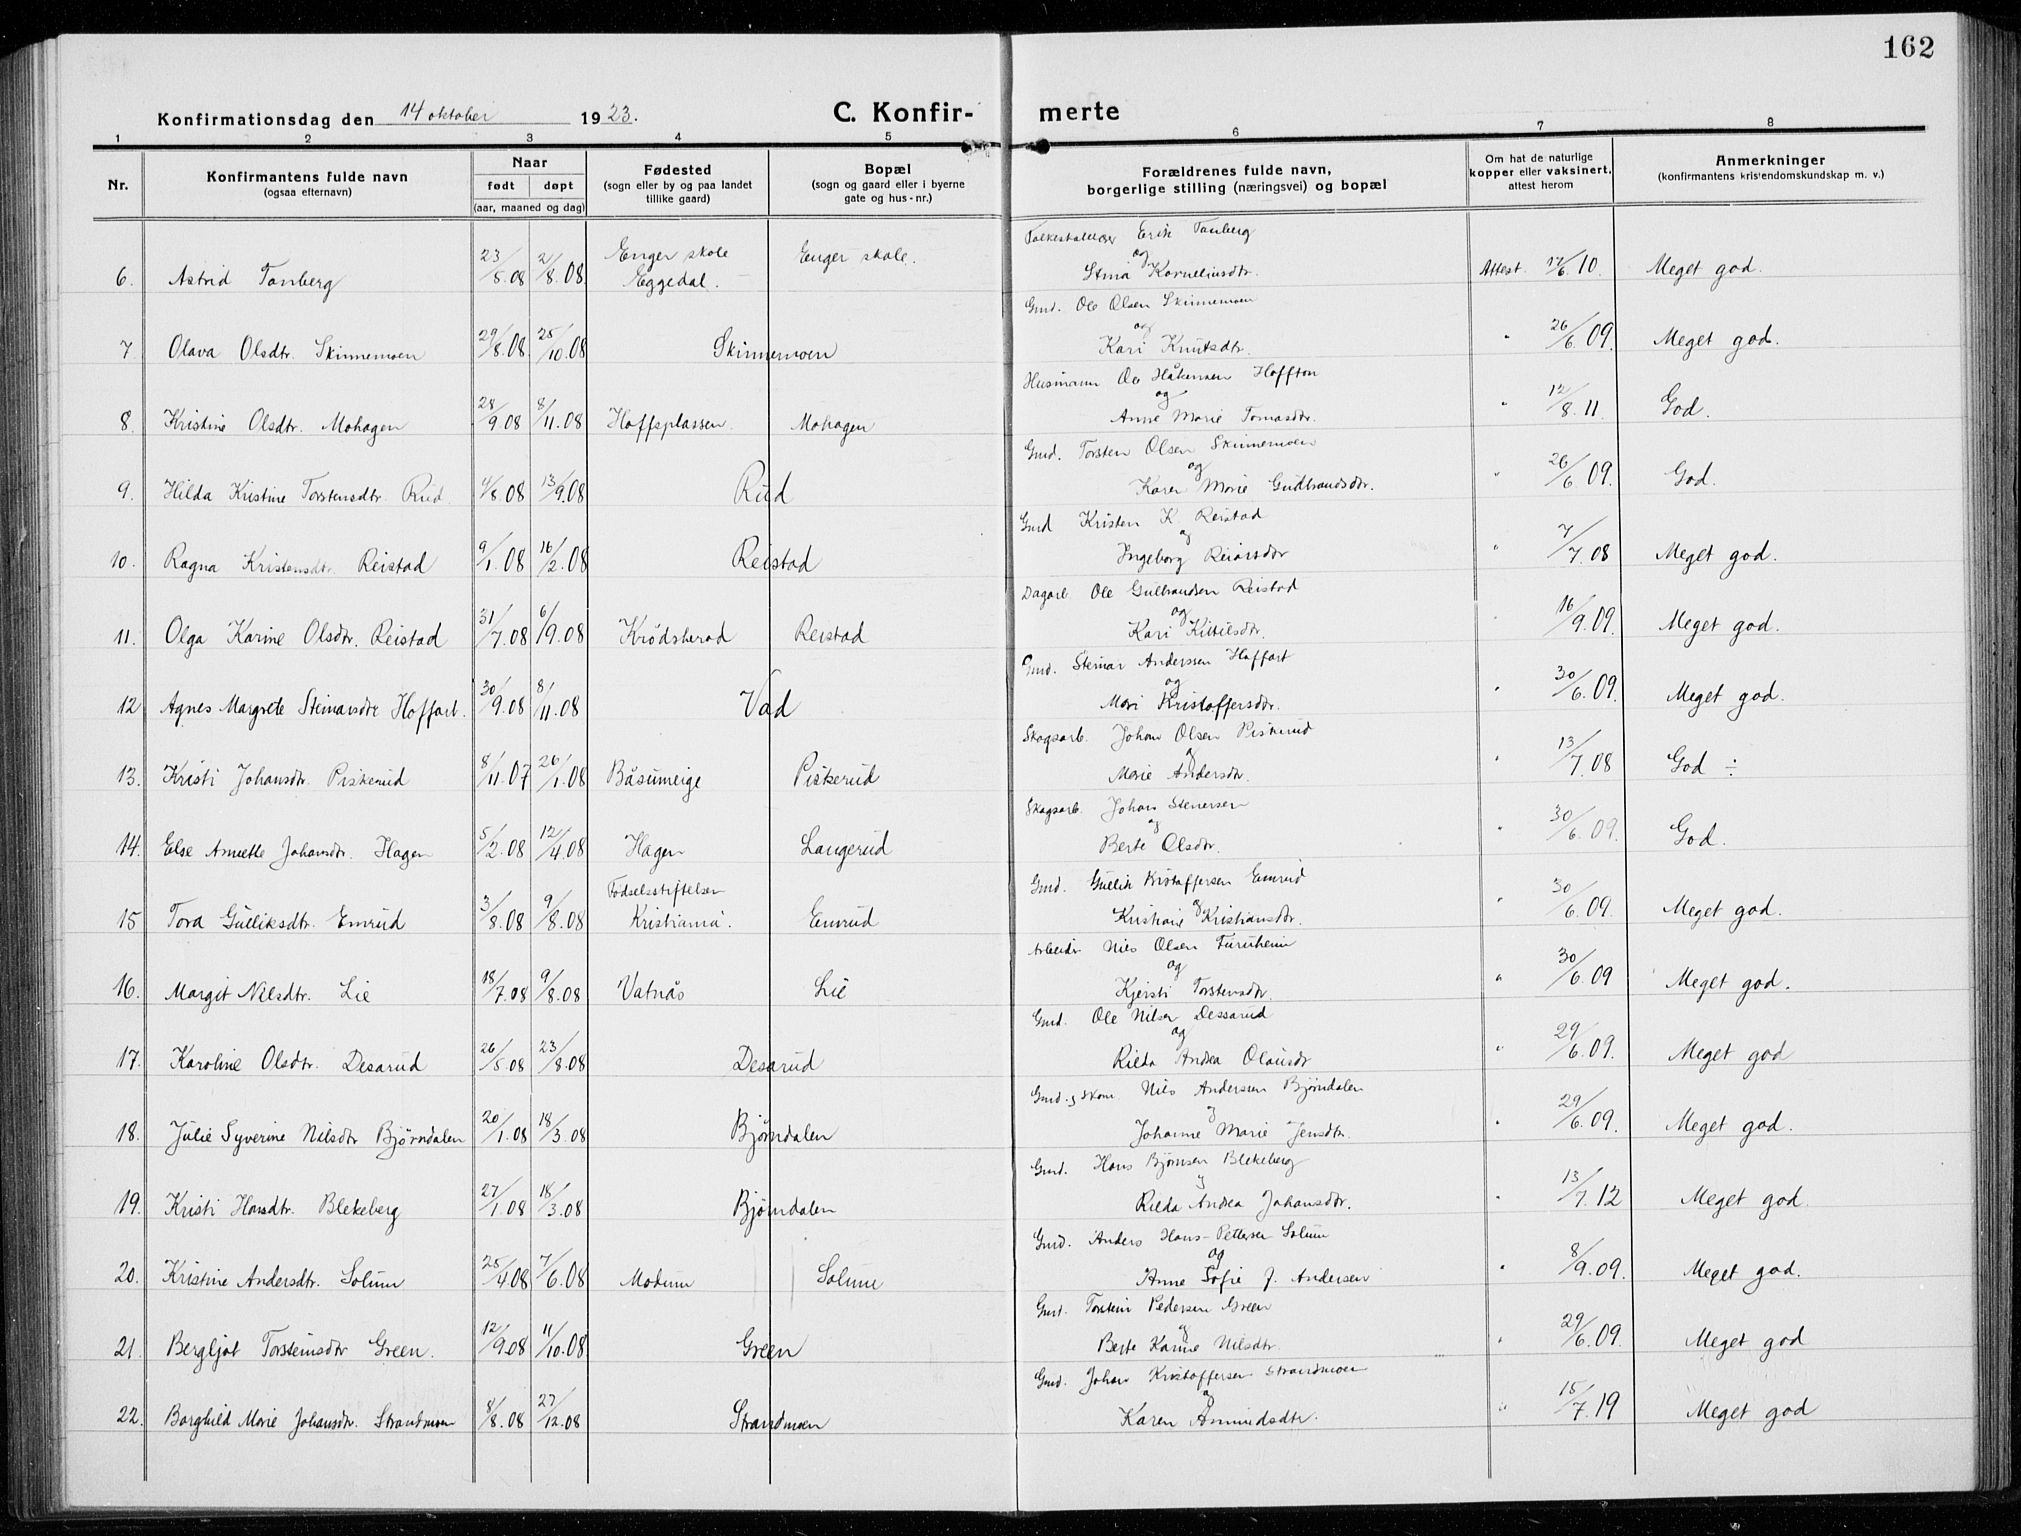 162
Konfirmationsdag den 14 oktober 1923.
C. Konfir-
merte
1 2 3 4 5 6 7 8
Nr.
Konfirmantens fulde navn
(ogsaa efternavn)
Naar
født døpt
(aar, maaned og dag)
Fødested
(sogn eller by og paa landet
tillike gaard)
Bopæl
(sogn og gaard eller i byerne
gate og hus-nr.)
Forældrenes fulde navn,
borgerlige stilling (næringsvei) og bopæl
Om hat de naturlige
kopper eller vaksinert,
attest herom
Anmerkninger
(konfirmantens kristendomskundskap m. v.)
Erik Tonberg
og
6. Astrid Tonberg 23/5.08 2/8.08 Enger skole Eggedal. Enger skole. Stina Korneliusdtr. Attest 17/6.10. Meget god.
Gmd. Ole Olsen Skinnemoen
og
7. Olava Olsdtr. Skinnemoen 29/8.08. 25/10.08 Skinnemoen Kari Knutsdtr. " 26/6.09. Meget god.
Husmann Ole Håkensen Hoffton
og
8. Kristine Olsdtr. Mohagen 28/9.08 8/11.08 Hoffsplassen. Mohagen Anne Marie Tomasdtr. " 12/8.11. God.
Gmd. Torsten Olsen Skinnemoen
og
9. Hilda Kristine Torstensdtr. Rud. 4/8.08 13/9.08 Rud Karen Marie Gudbrandsdtr. " 26/6.09. God.
Gmd Kristen K. Reistad
og
10. Ragna Kristensdtr. Reistad 9/1.08 16/2.08 Reistad Ingeborg Reiarsdtr " 7/7.08 Meget god.
Dagarb. Ole Gulbrandsen Reistad
og
11. Olga Karine Olsdtr. Reistad 31/7.08 6/9.08 Krødsherad Reistad Kari Kittilsdtr. " 16/9.09. Meget god.
Gmd. Steinar Anderssen Hoffart
og
12 Agnes Margrete Steinarsdtr Hoffart. 30/9.08 8/11.08 Vad Mari Kristoffersdtr. " 30/6.09. Meget god.
Skogsarb. Johan Olsen Piskerud
og
13. Kristi Johansdtr. Piskerud 8/11.07 26/1.08 Båsumeige Piskerud Marie Andersdtr. " 13/7.08 God ÷
Skogsarb. Johan Stenersen
og
14. Else Anette Johansdtr. Hagen 5/2.08 12/4.08 Hagen Langerud Berte Olsdtr. " 30/6.09. God.
Gmd. Gullik Kristoffersen Emrud
og
15 Tora Gulliksdtr. Emrud 3/8.08 9/8.08 Fødselsstiftelsen Kristiania. Emrud Kristiane Kristiansdtr. " 30/6.09. Meget god.
Arbeider Nils Olsen Furuheim
og
16. Margit Nilsdtr. Lie 18/7.08 9/8.08 Vatnås Lie Kjersti Torstensdtr. " 30/6.09 Meget god.
Gmd. Ole Nilsen Dessarud
og
17. Karoline Olsdtr. Desarud 26/5.08 23/8.08 Desarud Rilda Andea Olausdtr " 29/6.09. Meget god
Gmd. Nils Andersen Bjørndalen
og
18. Julie Syverine Nilsdtr Bjørndalen 20/1.08 18/3.08 Bjørndalen Johanne Marie Jensdtr. " 29/6.09. Meget god.
Gmd. Hans Bjørnsen Blekeberg
og
19. Kristi Hansdtr. Blekeberg 27/1.08 18/3.08 Bjørndalen Rilda Andea Johansdtr. " 13/7.12 Meget god.
Gmd. Anders Hans-Pettersen Solum
og
20. Kristine Andersdtr. Solum 25/4.08 7/6.08 Modum Solum Anne Sofie J. Andersen " 8/9.09. Meget god.
Gmd. Torstein Pedersen Green
og
21. Bergljot Torsteinsdtr Green. 12/9.08 11/10.08 Green Berte Karine Nilsdtr. " 29/6.09. Meget god
Gmd. Johan Kristoffersen Strandmoen
og
22. Borghild Marie Johansdtr. Strandmoen 8/8.08 27/12.08 Strandmoen Karen Amundsdtr. " 15/7.19 Meget god